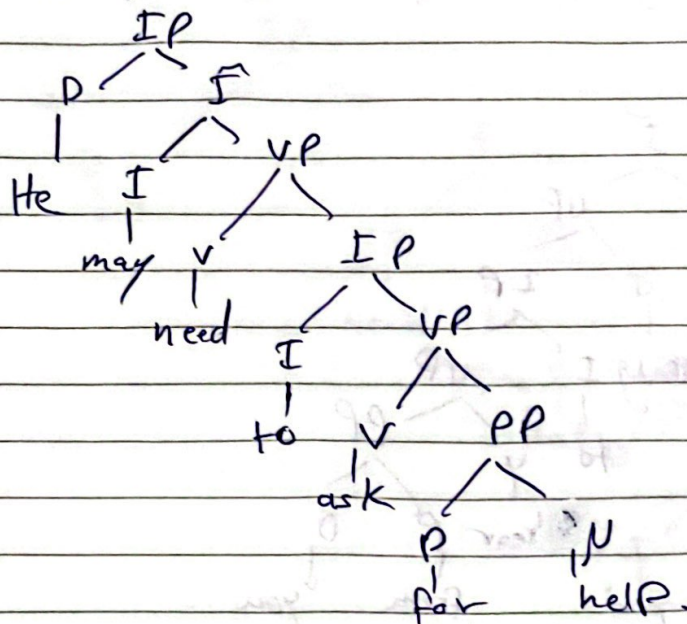 IP
D Ī
He I VP
may V IP
need I VP
to V PP
ask P N
for help.